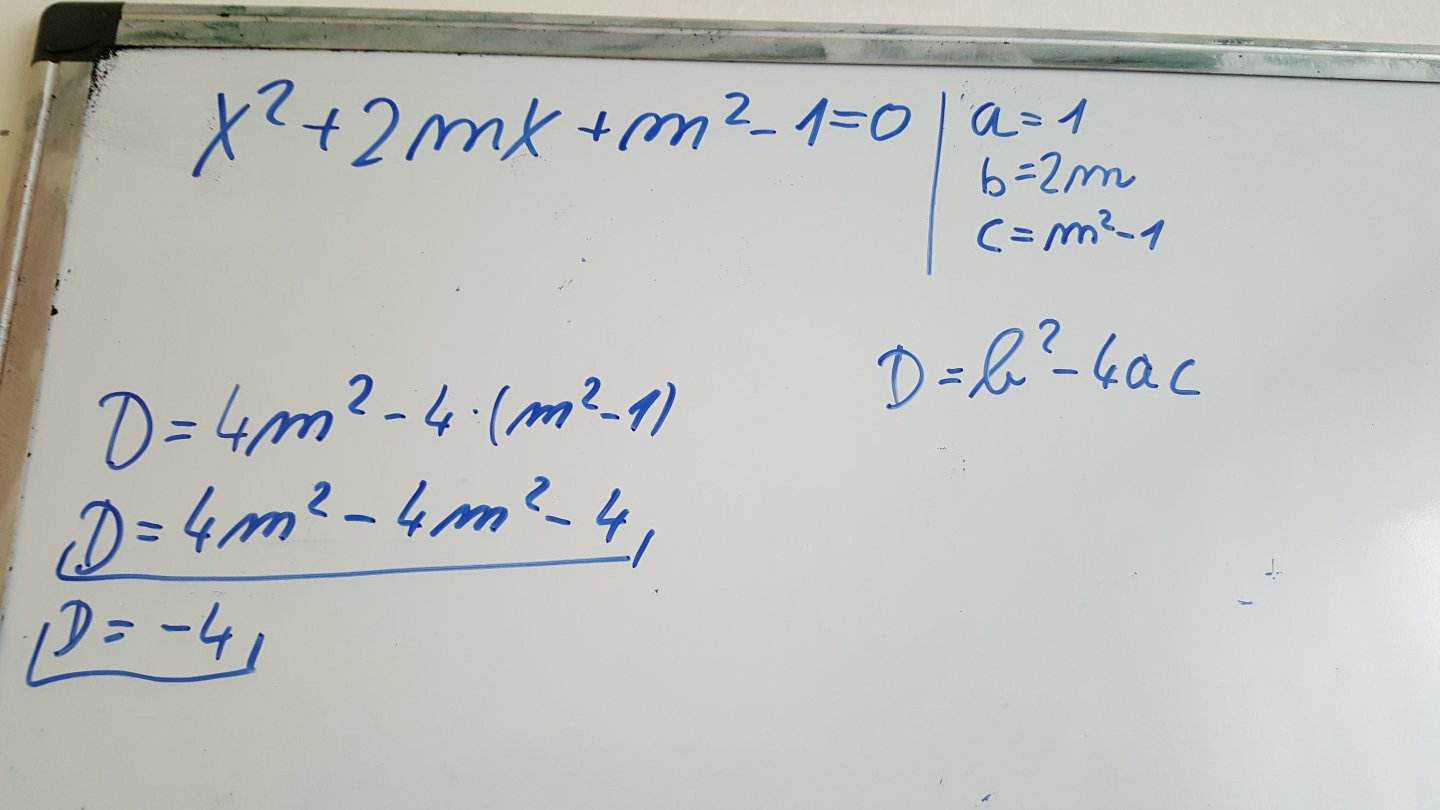 x² + 2mx + m² - 1 = 0
a = 1
b = 2m
c = m² - 1
D = b² - 4ac
D = 4m² - 4 · (m² - 1)
D = 4m² - 4m² - 4
D = -4